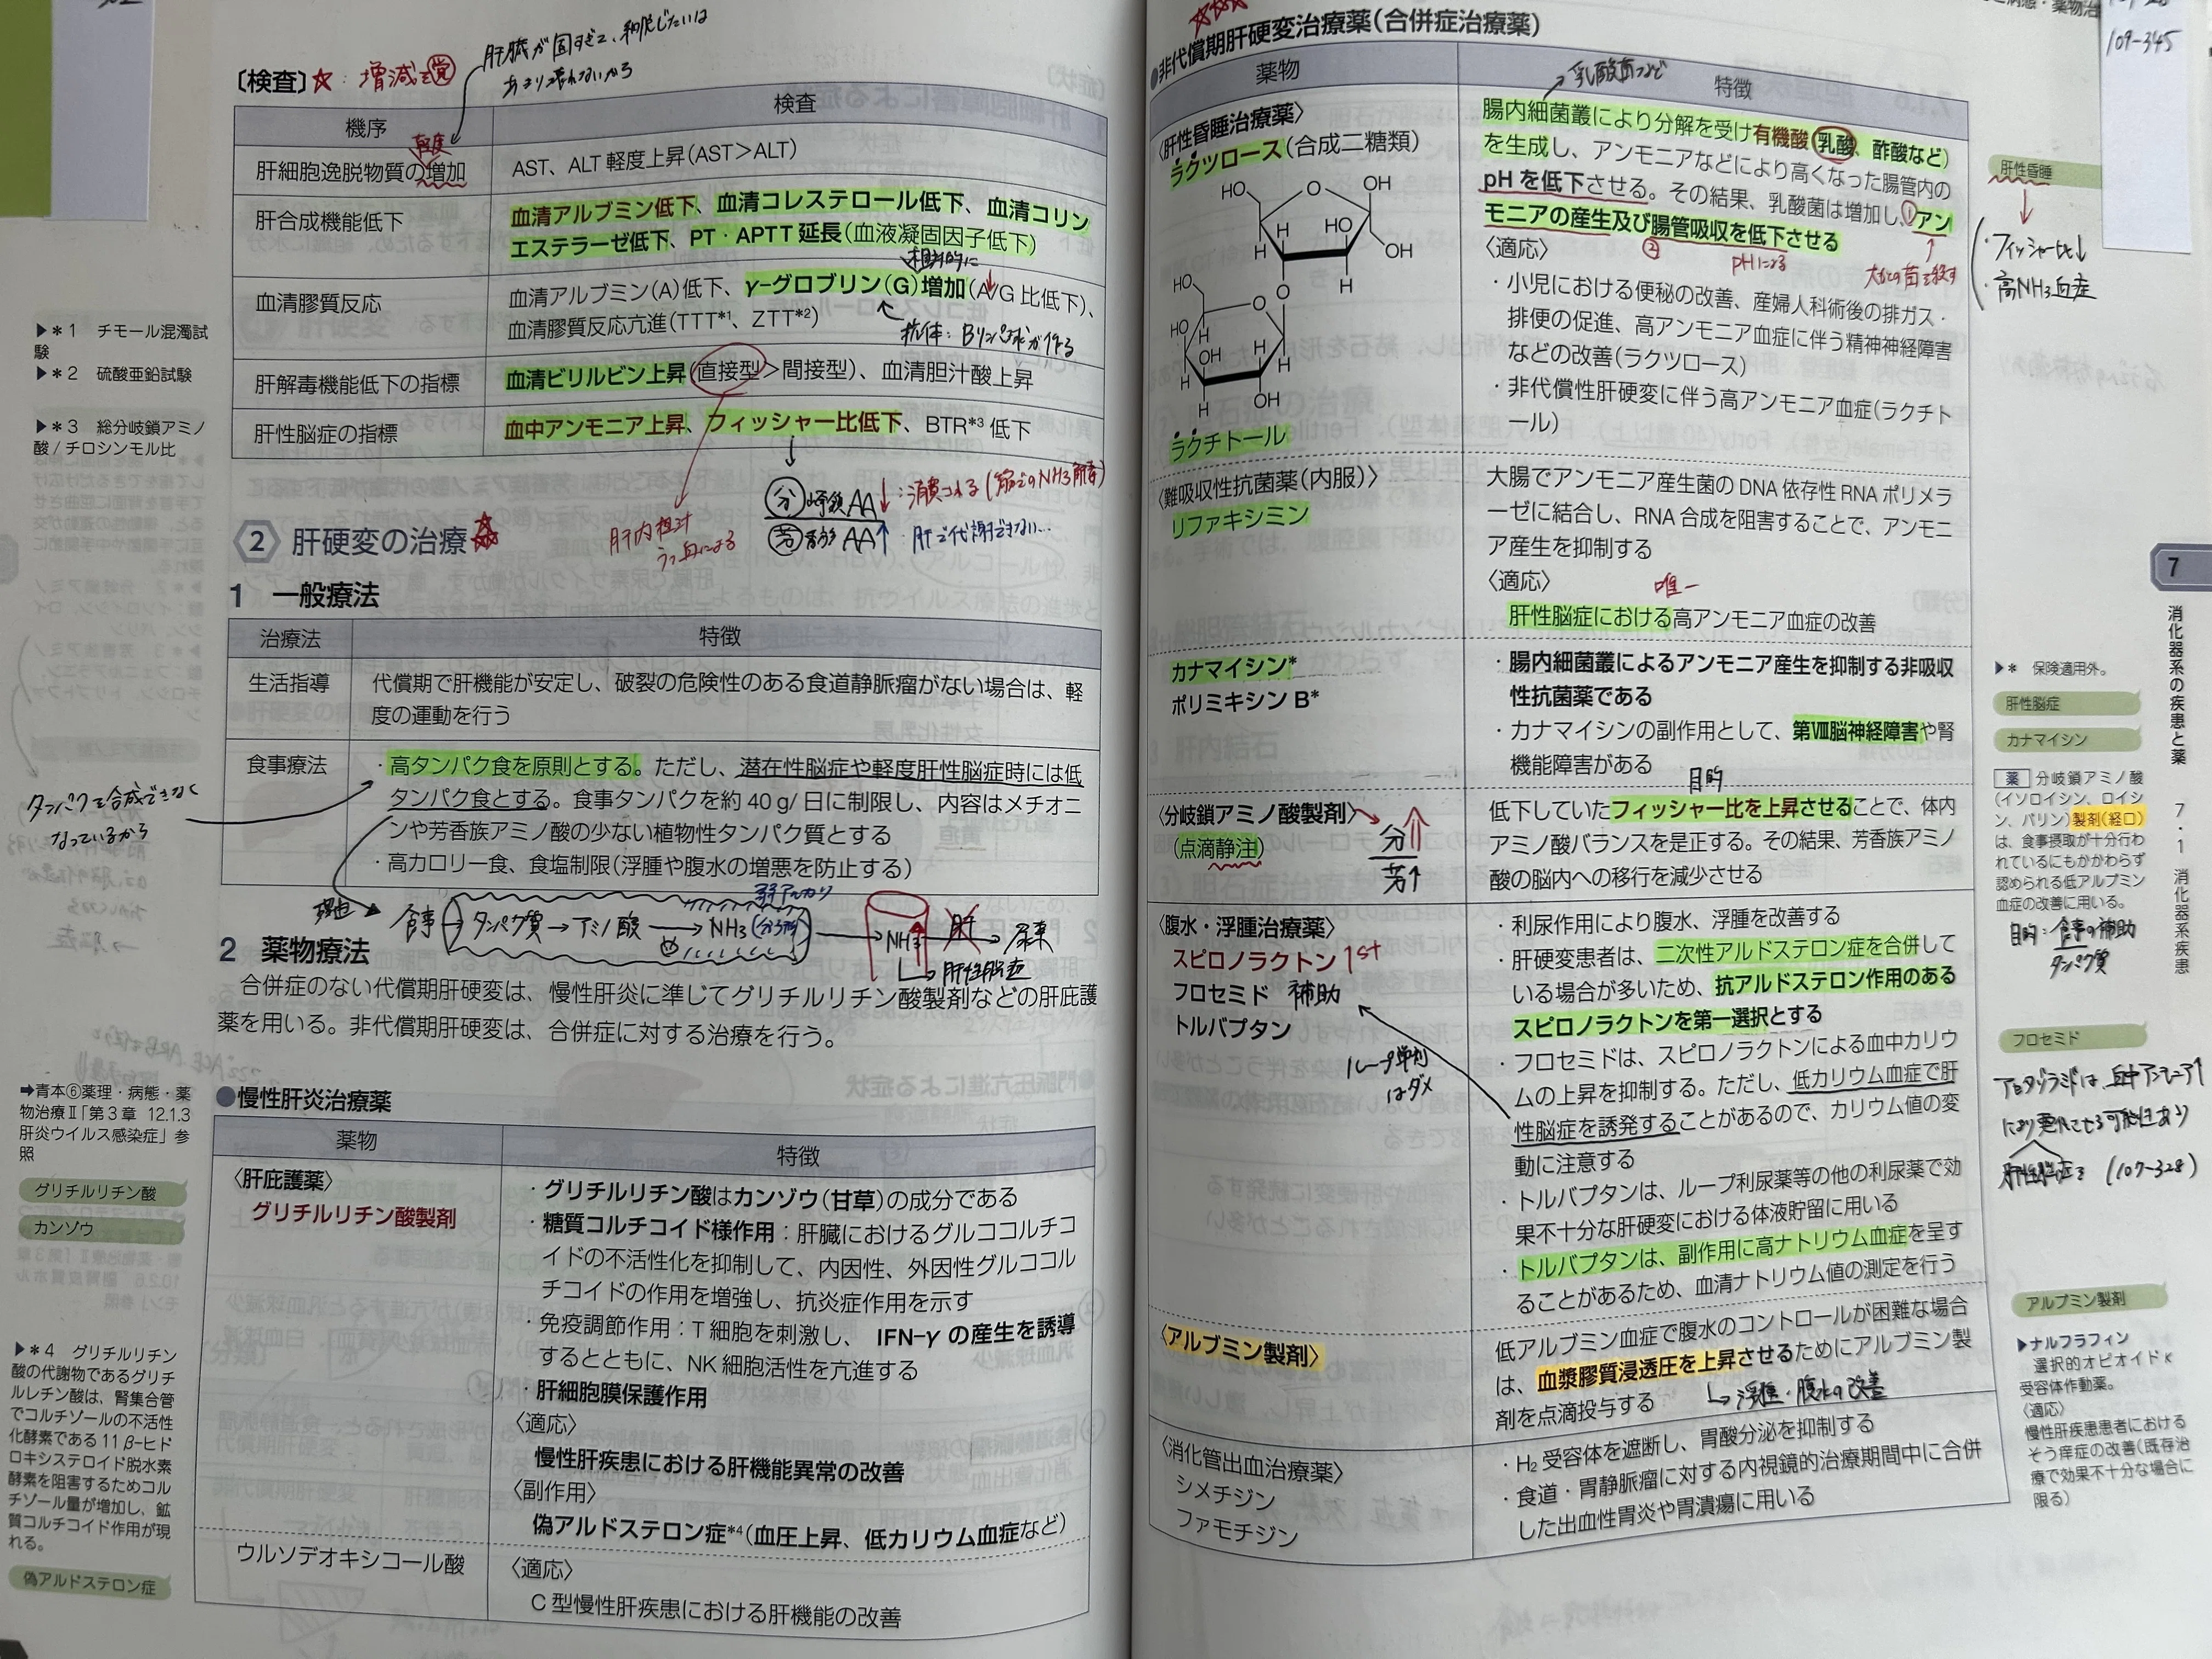 〔検査〕☆：増減を覚
肝臓が固すぎて、
あまり壊れないから
機序
検査
軽度
肝細胞逸脱物質の増加
AST、ALT 軽度上昇(AST＞ALT)
肝合成機能低下
血清アルブミン低下、血清コレステロール低下、血清コリン
エステラーゼ低下、PT・APTT 延長(血液凝固因子低下)
相対的に
血清膠質反応
血清アルブミン(A)低下、γ-グロブリン(G)増加(A/G 比低下)、
血清膠質反応亢進(TTT*1、ZTT*2)
抗体：Bリンパ球が作る
肝解毒機能低下の指標
血清ビリルビン上昇(直接型＞間接型)、血清胆汁酸上昇
肝性脳症の指標
血中アンモニア上昇、フィッシャー比低下、BTR*3 低下
分岐鎖AA↓：消費される(筋でのNH3解毒)
芳香族AA↑：肝で代謝できない…
肝内胆汁
うっ血による
▶＊1　チモール混濁試
験
▶＊2　硫酸亜鉛試験
▶＊3　総分岐鎖アミノ
酸 / チロシンモル比
2 肝硬変の治療☆
1　一般療法
治療法
特徴
生活指導
代償期で肝機能が安定し、破裂の危険性のある食道静脈瘤がない場合は、軽
度の運動を行う
食事療法
・高タンパク食を原則とする。ただし、潜在性脳症や軽度肝性脳症時には低
タンパク食とする。食事タンパクを約 40 g/ 日に制限し、内容はメチオニ
ンや芳香族アミノ酸の少ない植物性タンパク質とする
・高カロリー食、食塩制限(浮腫や腹水の増悪を防止する)
タンパクを合成できなく
なっているから
理由
食事
タンパク質→アミノ酸→NH3(分子型)
弱アルカリ
NH3↑
肝
尿素
肝性脳症
2　薬物療法
合併症のない代償期肝硬変は、慢性肝炎に準じてグリチルリチン酸製剤などの肝庇護
薬を用いる。非代償期肝硬変は、合併症に対する治療を行う。
➡青本⑥薬理・病態・薬
物治療Ⅱ「第 3 章　12.1.3
肝炎ウイルス感染症」参
照
グリチルリチン酸
カンゾウ
●慢性肝炎治療薬
薬物
特徴
〈肝庇護薬〉
グリチルリチン酸製剤
・グリチルリチン酸はカンゾウ(甘草)の成分である
・糖質コルチコイド様作用：肝臓におけるグルココルチコ
イドの不活性化を抑制して、内因性、外因性グルココル
チコイドの作用を増強し、抗炎症作用を示す
・免疫調節作用：T 細胞を刺激し、IFN-γ の産生を誘導
するとともに、NK 細胞活性を亢進する
・肝細胞膜保護作用
〈適応〉
慢性肝疾患における肝機能異常の改善
〈副作用〉
偽アルドステロン症*4(血圧上昇、低カリウム血症など)
ウルソデオキシコール酸
〈適応〉
C 型慢性肝疾患における肝機能の改善
▶＊4　グリチルリチン
酸の代謝物であるグリチ
ルレチン酸は、腎集合管
でコルチゾールの不活性
化酵素である 11 β-ヒド
ロキシステロイド脱水素
酵素を阻害するためコル
チゾール量が増加し、鉱
質コルチコイド作用が現
れる。
偽アルドステロン症
109-345
●非代償期肝硬変治療薬(合併症治療薬)
薬物
特徴
乳酸菌など
〈肝性昏睡治療薬〉
ラクツロース(合成二糖類)
HO
O
OH
HO
H
H
OH
H
H
O
HO
O
H
HO
H
OH
H
H
H
OH
ラクチトール
腸内細菌叢により分解を受け有機酸(乳酸、酢酸など)
を生成し、アンモニアなどにより高くなった腸管内の
pH を低下させる。その結果、乳酸菌は増加し、①アン
モニアの産生及び腸管吸収を低下させる
②
pHによる
大腸の菌を殺す
〈適応〉
・小児における便秘の改善、産婦人科術後の排ガス・
排便の促進、高アンモニア血症に伴う精神神経障害
などの改善(ラクツロース)
・非代償性肝硬変に伴う高アンモニア血症(ラクチト
ール)
肝性昏睡
・フィッシャー比↓
・高NH3血症
〈難吸収性抗菌薬(内服)〉
リファキシミン
大腸でアンモニア産生菌の DNA 依存性 RNA ポリメラ
ーゼに結合し、RNA 合成を阻害することで、アンモニ
ア産生を抑制する
〈適応〉
唯一
肝性脳症における高アンモニア血症の改善
カナマイシン*
ポリミキシン B*
・腸内細菌叢によるアンモニア産生を抑制する非吸収
性抗菌薬である
・カナマイシンの副作用として、第Ⅷ脳神経障害や腎
機能障害がある
▶＊　保険適用外。
肝性脳症
カナマイシン
〈分岐鎖アミノ酸製剤〉
(点滴静注)
分↑
芳↑
目的
低下していたフィッシャー比を上昇させることで、体内
アミノ酸バランスを是正する。その結果、芳香族アミノ
酸の脳内への移行を減少させる
薬 分岐鎖アミノ酸
(イソロイシン、ロイシ
ン、バリン)製剤(経口)
は、食事摂取が十分行わ
れているにもかかわらず
認められる低アルブミン
血症の改善に用いる。
目的：食事の補助
タンパク質
〈腹水・浮腫治療薬〉
スピロノラクトン 1st
フロセミド 補助
トルバプタン
ループ単剤
はダメ
・利尿作用により腹水、浮腫を改善する
・肝硬変患者は、二次性アルドステロン症を合併して
いる場合が多いため、抗アルドステロン作用のある
スピロノラクトンを第一選択とする
・フロセミドは、スピロノラクトンによる血中カリウ
ムの上昇を抑制する。ただし、低カリウム血症で肝
性脳症を誘発することがあるので、カリウム値の変
動に注意する
・トルバプタンは、ループ利尿薬等の他の利尿薬で効
果不十分な肝硬変における体液貯留に用いる
・トルバプタンは、副作用に高ナトリウム血症を呈す
ることがあるため、血清ナトリウム値の測定を行う
フロセミド
アセタゾラミドは 血中アンモニア↑
により悪化させる可能性あり
肝性脳症を (107-328)
〈アルブミン製剤〉
低アルブミン血症で腹水のコントロールが困難な場合
は、血漿膠質浸透圧を上昇させるためにアルブミン製
剤を点滴投与する
浮腫・腹水の改善
アルブミン製剤
〈消化管出血治療薬〉
シメチジン
ファモチジン
・H2 受容体を遮断し、胃酸分泌を抑制する
・食道・胃静脈瘤に対する内視鏡的治療期間中に合併
した出血性胃炎や胃潰瘍に用いる
▶ナルフラフィン
選択的オピオイド κ
受容体作動薬。
〈適応〉
慢性肝疾患患者における
そう痒症の改善(既存治
療で効果不十分な場合に
限る)
7
消化器系の疾患と薬　7・1　消化器系疾患